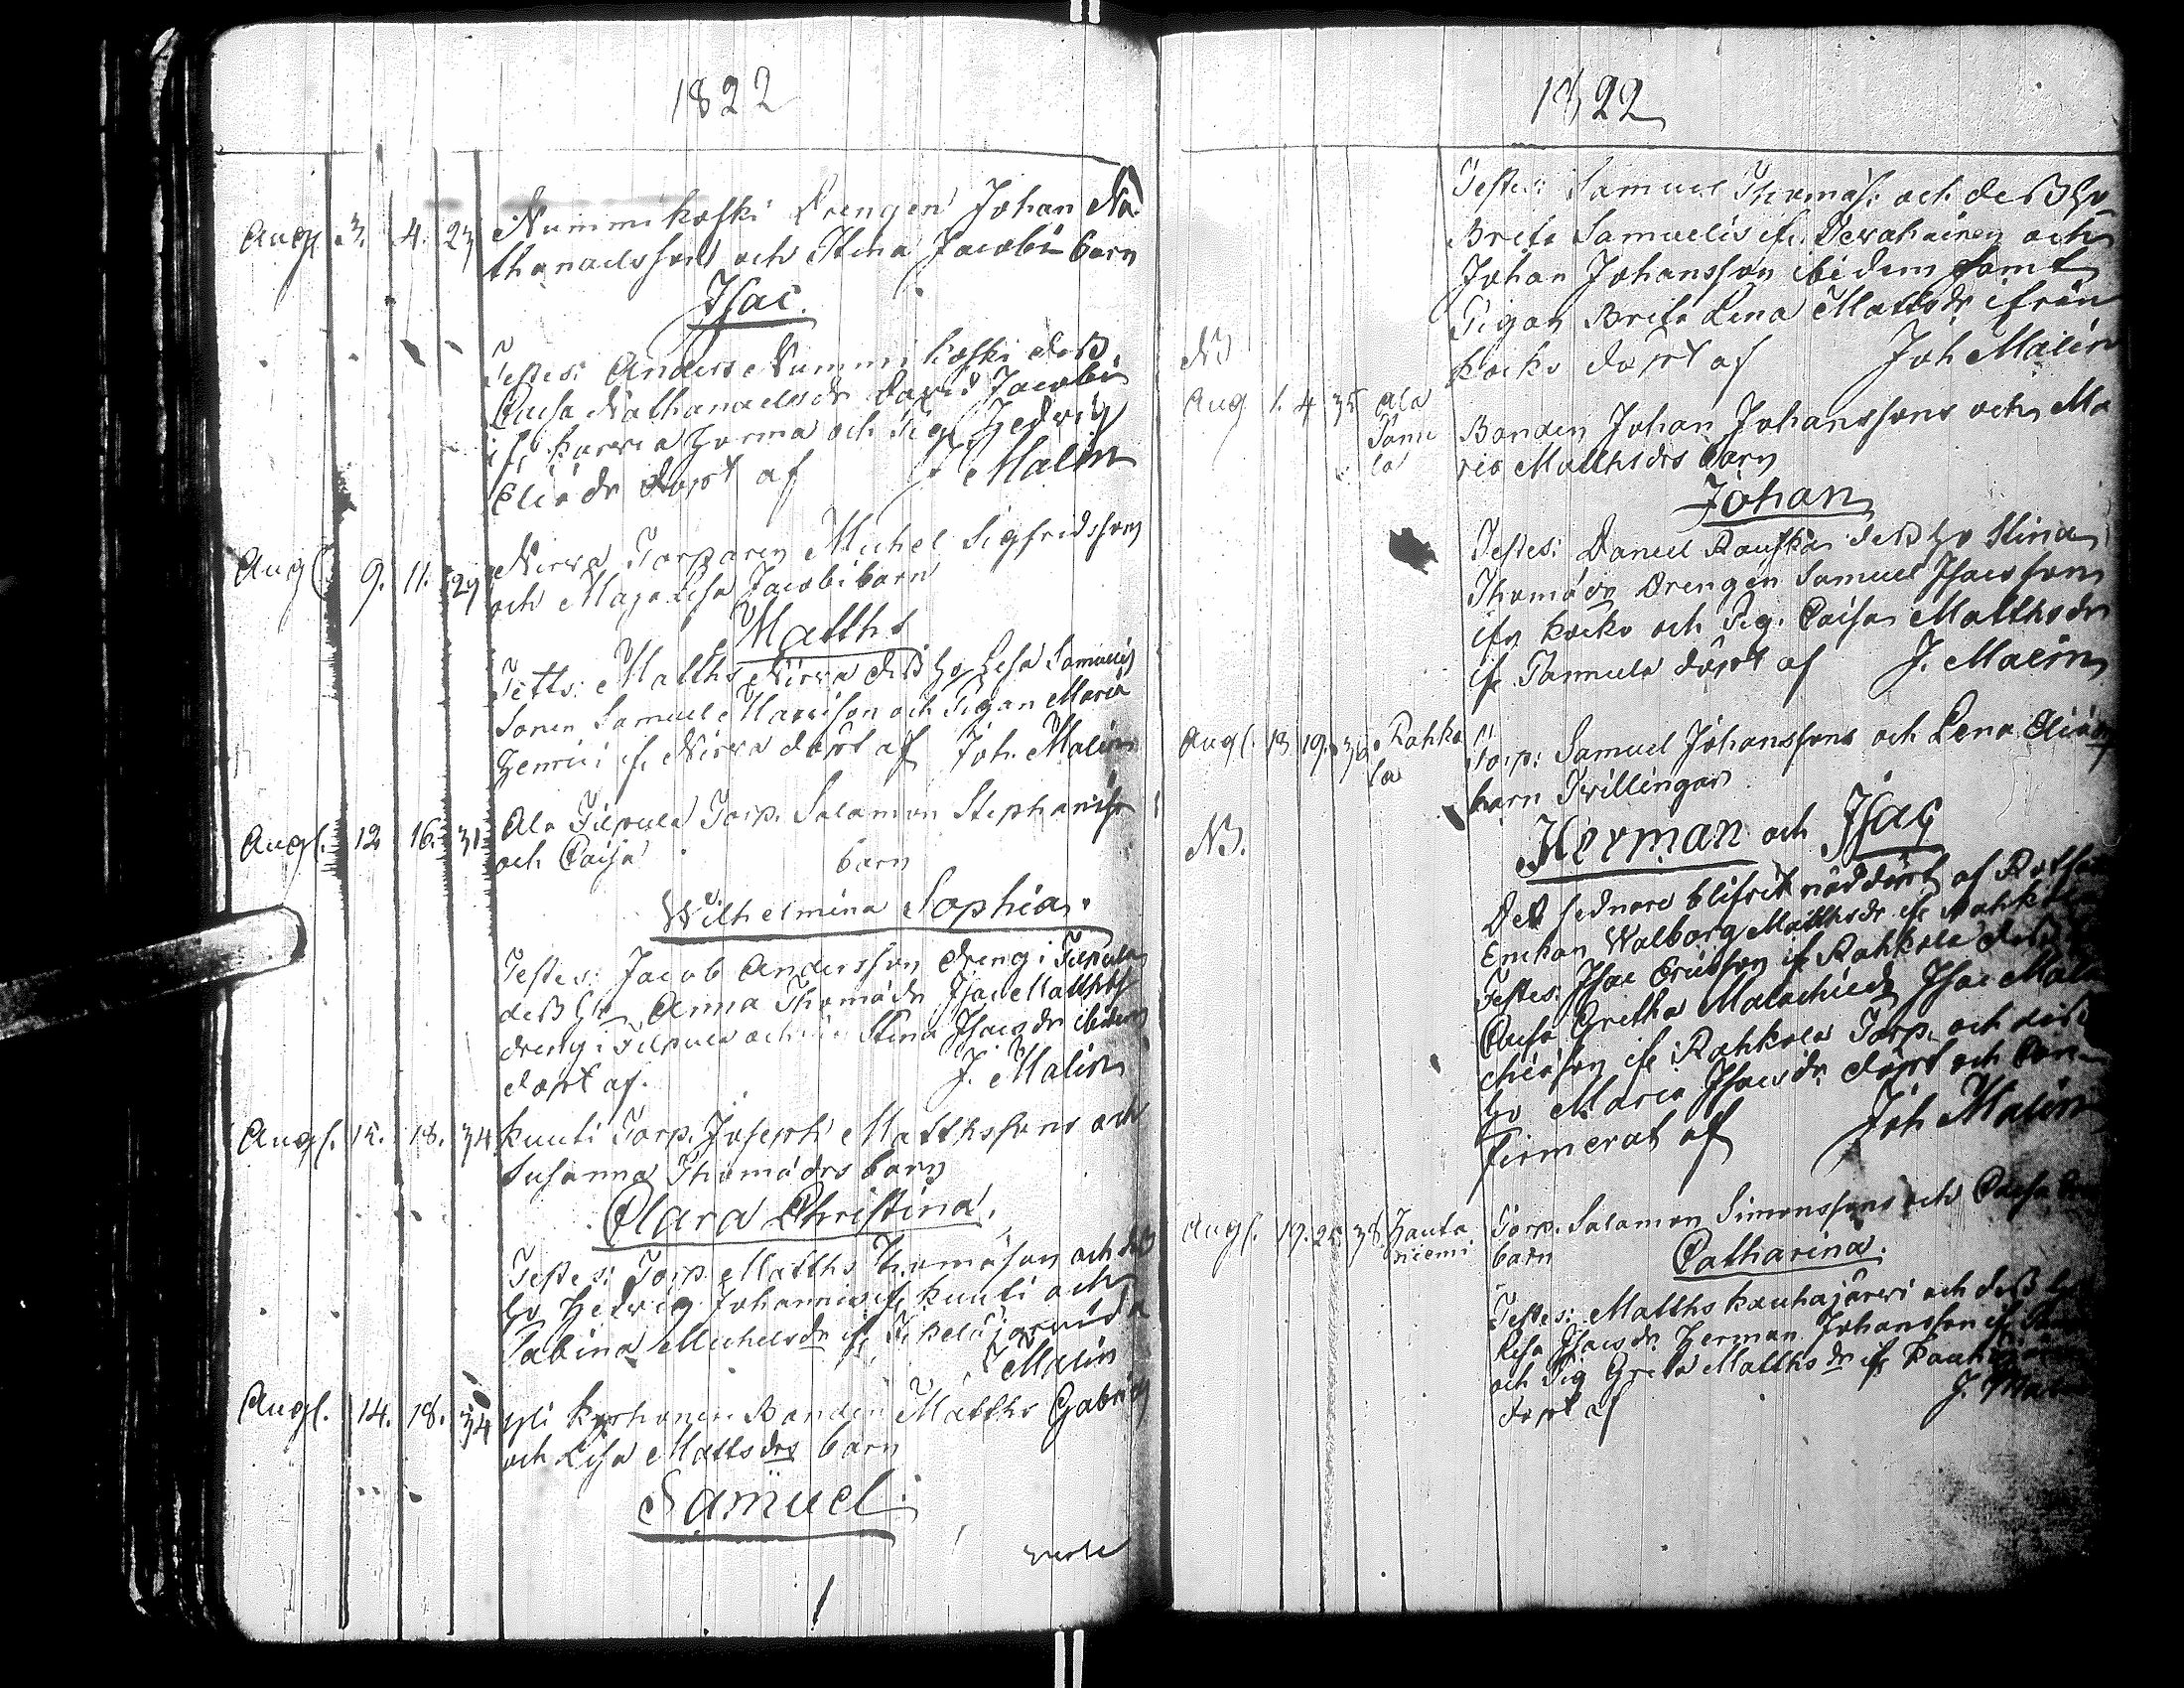 1822
Aug. 3. 4. 23 Nummikoski Drengen Johan Na
thanaelsson och Stina Jacobi barn
Isac.
Testes: Anders Nummikoski dess
Caisa Nathanaelsdr David Jacobi
if. och Pig. Hedvig
Eliædr döpt af J Malin
Augl. 9. 11. 29 Nirva Torparen Michel Sigfridsson
och Maja Lisa Jacobi barn
Matths
Tests: Matths Nirva dess Hu Lisa Samuelis
Sonen Samuel och Pigan Maria
Henrici if. Nirva döpt af Joh. Malin
Augl. 12 16. 31 Ala Filpula Torp. Salamon Stephanis
och Caisa barn
Wilhelmina Sophia.
Testes: Jacob Andersson dreng i Filpula
dess Hu Anna Thomædr Isac Matths
dreng i Filpula och Stina Isacsdr ibidem
döpt af. J. Malin
Augl. 15. 18. 34 Kuuti Torp. Joseph Matthssons och
Susanna Thomædrs barn
Clara Christina.
Testes: Torp. Matths Thomæson och dess
Hu Hedvig Johannis if. Kuuti och
Sabina Michelsdr if.
J Malin
Augl. 14. 18. 34 Yli Kyrhonen Bonden Matths Gabriels
och Lisa Mattsdrs barn
Samuel.
verte
1822
Testes: Samuel Thomæs. och dess Hu
Brita Samuelis if. och
Johan Johansson ibidem samt
Pigan Brita Lena Mattsdr ifrån
Kocko döpt af Joh Malin
NB
Aug 1. 4 35 Ala Bonden Johan Johanssons och Ma
la ria Matthsdrs barn
Johan
Testes: Daniel Rauska dess Hu Stina
Thomædr Drengen Samuel Isacsson
ifrn Kocko och Pig. Caisa Matthsdr
if. döpt af J. Malin
Augl. 13 19. 36 Rahko Torp: Samuel Johanssons och Lena Eliædr
la barn Tvillingar
NB. Herman och Isac
Det sednare blifvit nöddöpt af
Enckan Walborg Matthsdr if. Rahkola
Testes: Isac Ericsson if. Rahkola dess
Caisa Gretha Malachiedr Isac Mala
chiæson if. Rahkola Torp. och dess
Hu Maria Isacsdr döpt och Con
firmerat af Joh Malin
Augl. 19. 25 38 Hauta Torp. Salamon Simonssons och Caisa
niemi barn Catharina.
Testes: Matths Kauhajärvi och dess Hu
Lisa Isacsdr. Herman Johansson if.
och Pig Greta Matthsdr if.
döpt af J. Malin